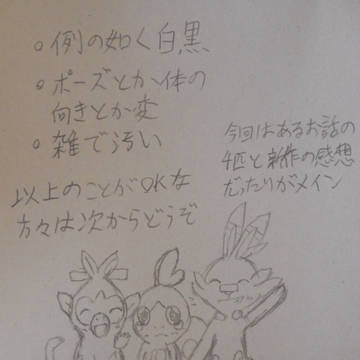 ○例の如く白黒
○ポーズとか体の
向きとか変
○雑で汚い
以上のことがOKな
方々は次からどうぞ
今回はあるお話の
4匹と新作の感想
だったりがメイン